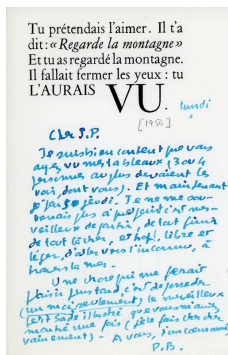 Tu prétendais l'aimer. Il t'a
dit : « Regarde la montagne »
Et tu as regardé la montagne.
Il fallait fermer les yeux : tu
L'AURAIS VU.
lundi
[1956]
Cher J.P.
Je suis bien content que vous
ayez vu mes tableaux (3 ou 4
personnes au plus devaient les
voir, dont vous). Et maintenant
je pars jeudi. Je ne me sou-
venais plus à quel point c'est mer-
veilleux de partir, de tout finir
de tout lâcher, et hop! libre et
léger, d'aller vers l'inconnu, à
travers la mer.
Une chose qui me ferait
plaisir plus tard, c'est de posséder
(un mois seulement) le merveilleux
Sade illustré que vous m'avez
montré une fois
vainement) - A vous,
P.B.